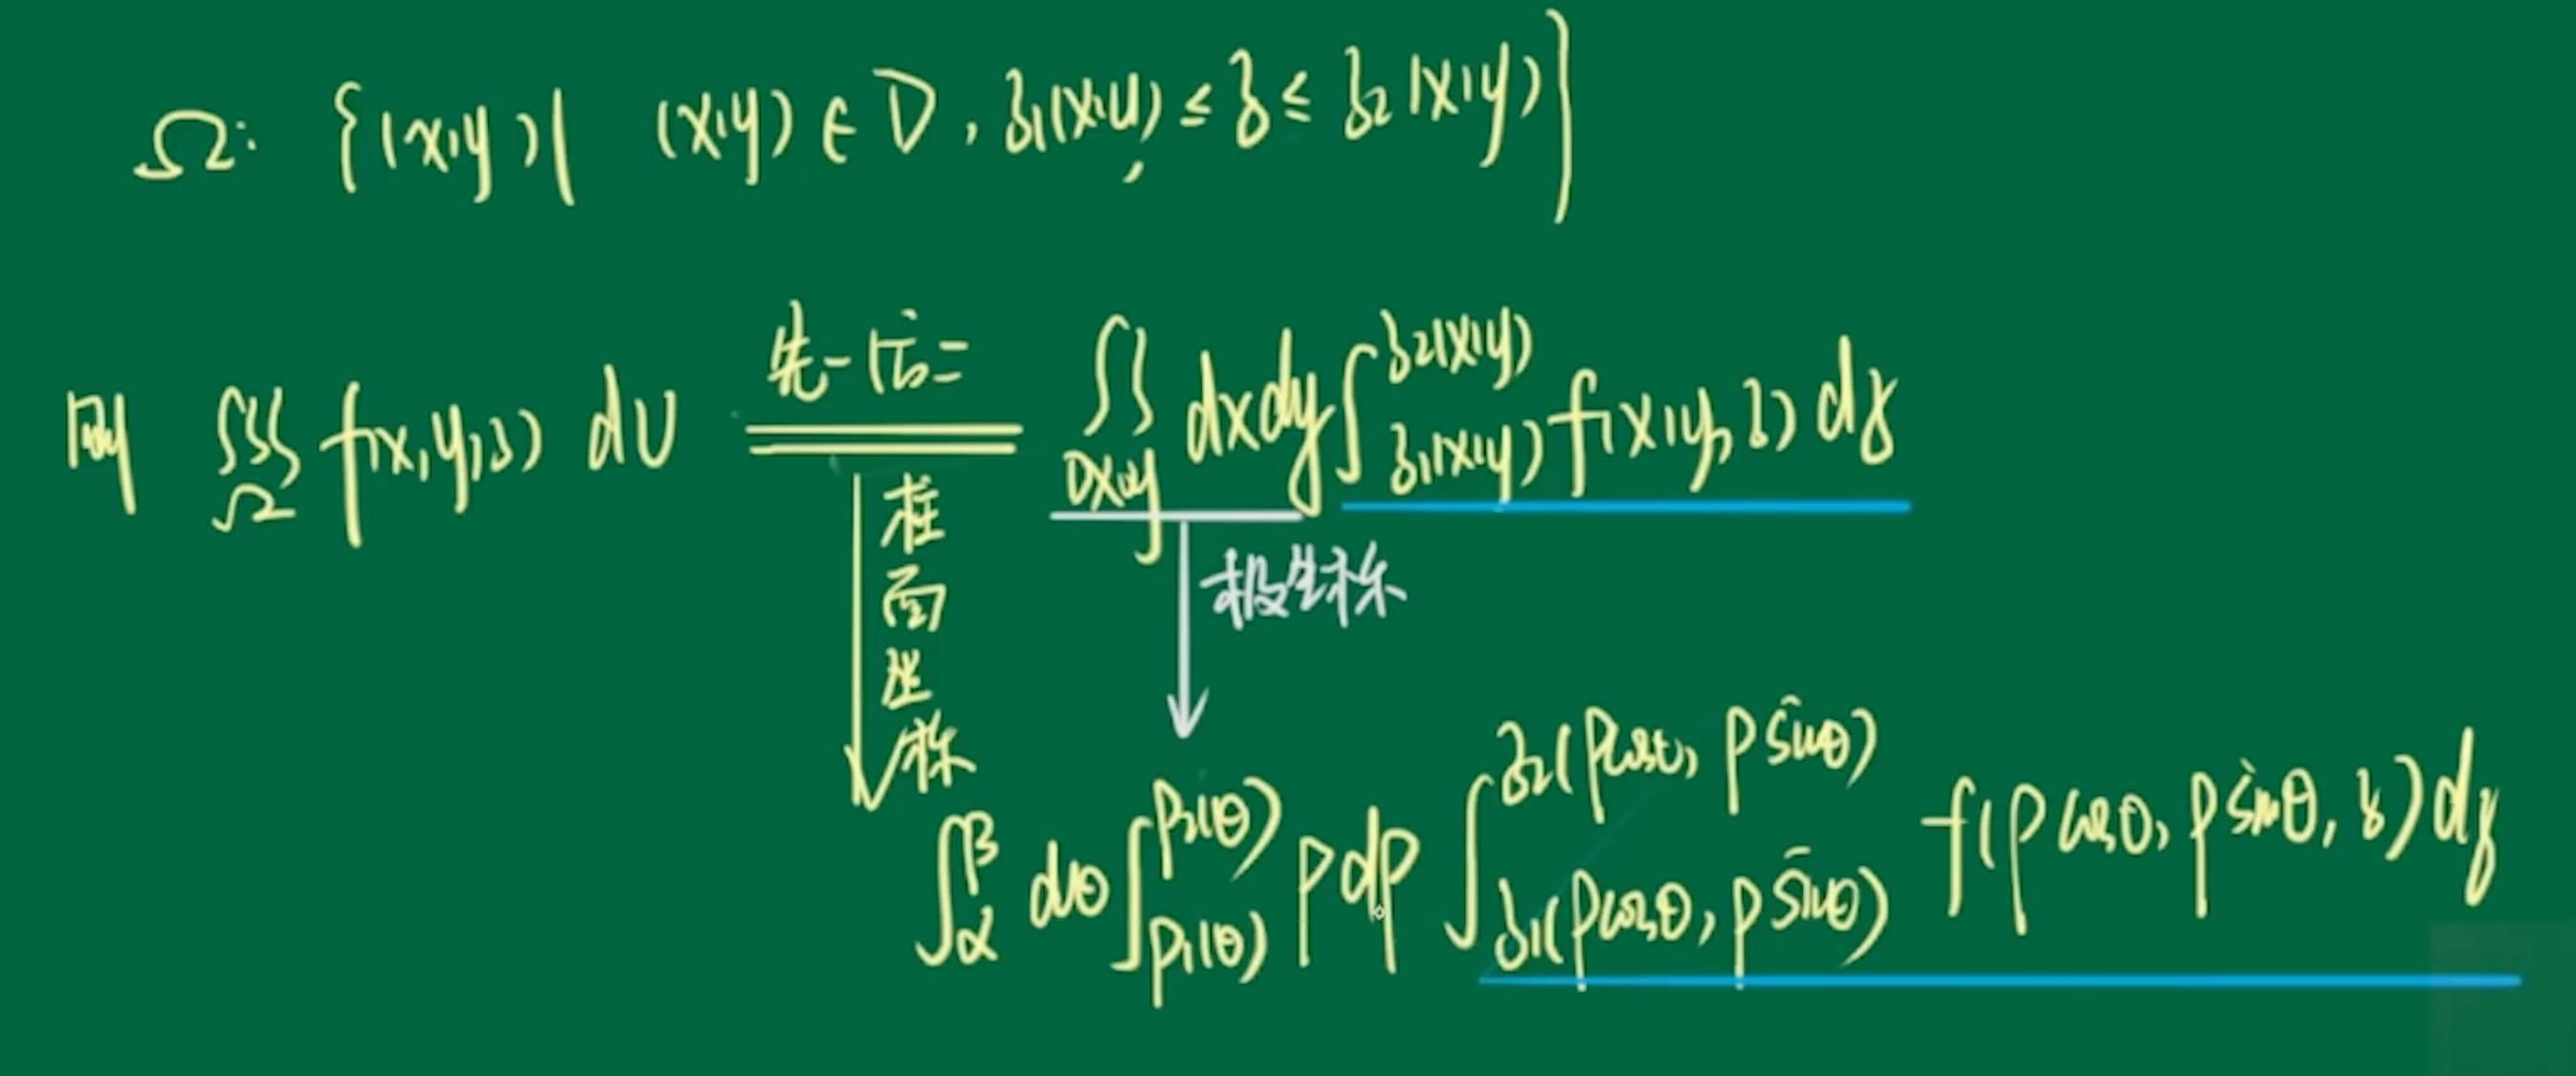 Ω: {(x,y)| (x,y) ∈ D, z₁(x,y) ≤ z ≤ z₂(x,y)}
则 ∭_Ω f(x,y,z) dv 先一后二 ∬_{Dxy} dxdy ∫_{z₁(x,y)}^{z₂(x,y)} f(x,y,z) dz
柱面坐标
极坐标
∫_α^β dθ ∫_{ρ₁(θ)}^{ρ₂(θ)} ρdρ ∫_{z₁(ρcosθ, ρsinθ)}^{z₂(ρcosθ, ρsinθ)} f(ρcosθ, ρsinθ, z) dz